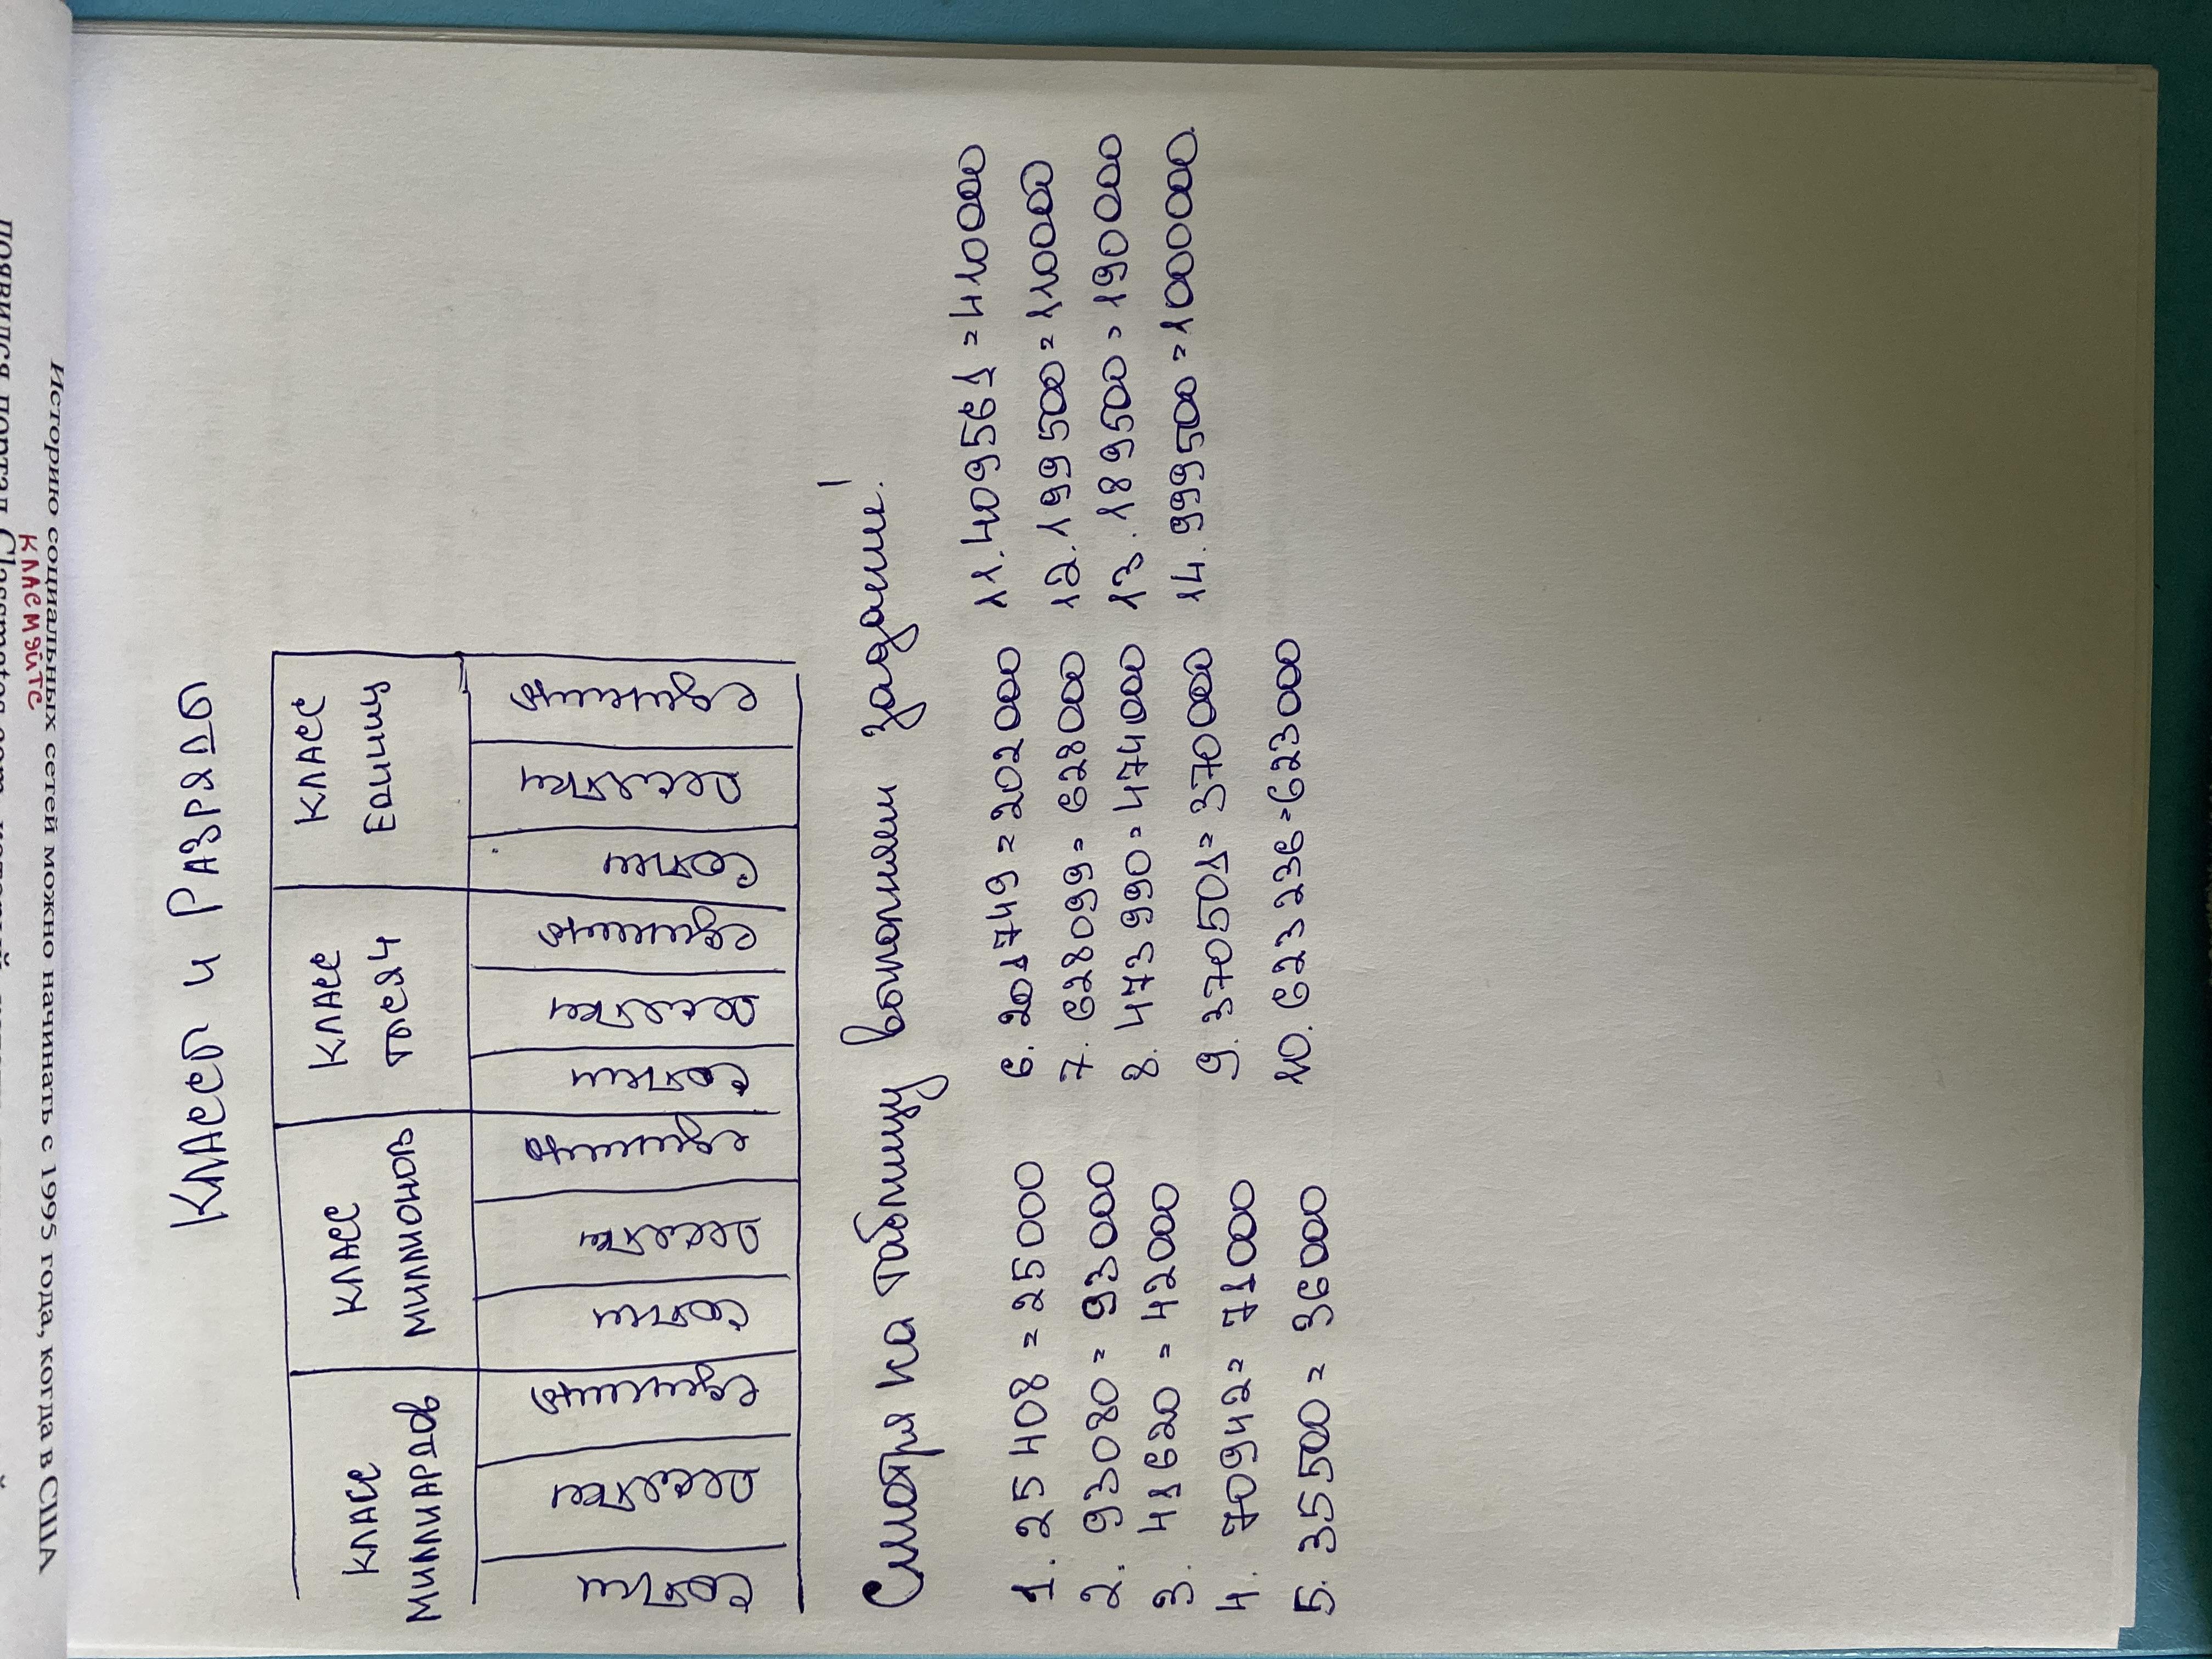 Классы и разряды
класс
миллиардов
класс
миллионов
класс
тысяч
класс
единиц
сотни десятки единицы сотни десятки единицы сотни десятки единицы сотни десятки единицы
Смотря на таблицу выполняем задание!
1. 25 408 = 25 000
2. 93020 = 93 000
3. 41620 = 42000
4. 70942 = 71000
5. 35500 = 36000
6. 201749 = 202000
7. 628099 = 628000
8. 473990 = 474000
9. 370501 = 370000
10. 623236 = 623000
11. 409591 = 410000
12. 199500 = 110000
13. 189500 = 190000
14. 999500 = 1000000
Историю социальных сетей можно начинать с 1995 года, когда в США
класмэйтс
появился портал Classmates.com